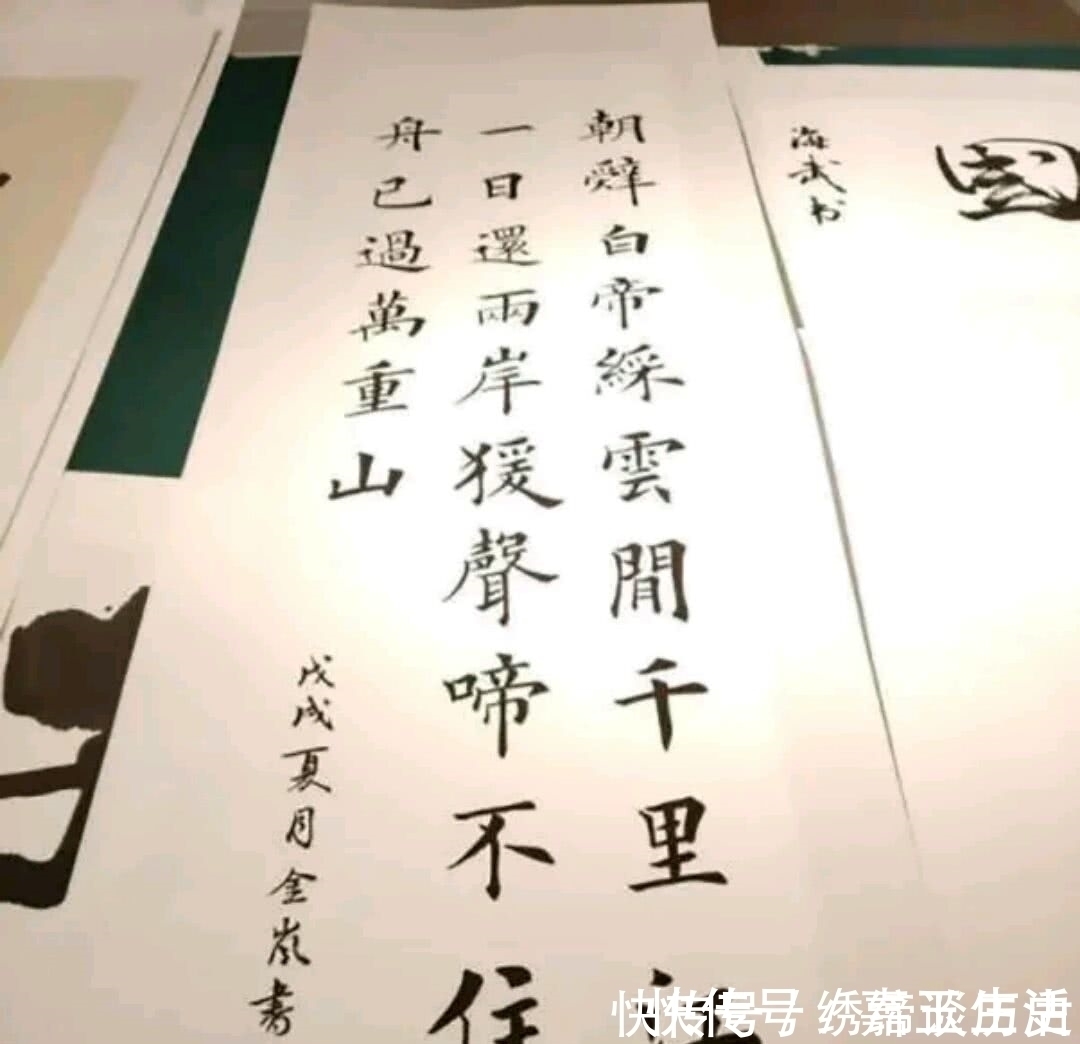 國
海武书
朝辭白帝綵雲閒千里
一日還兩岸猨聲啼不住
舟已過萬重山
戊戌夏月金嵐書
快传号